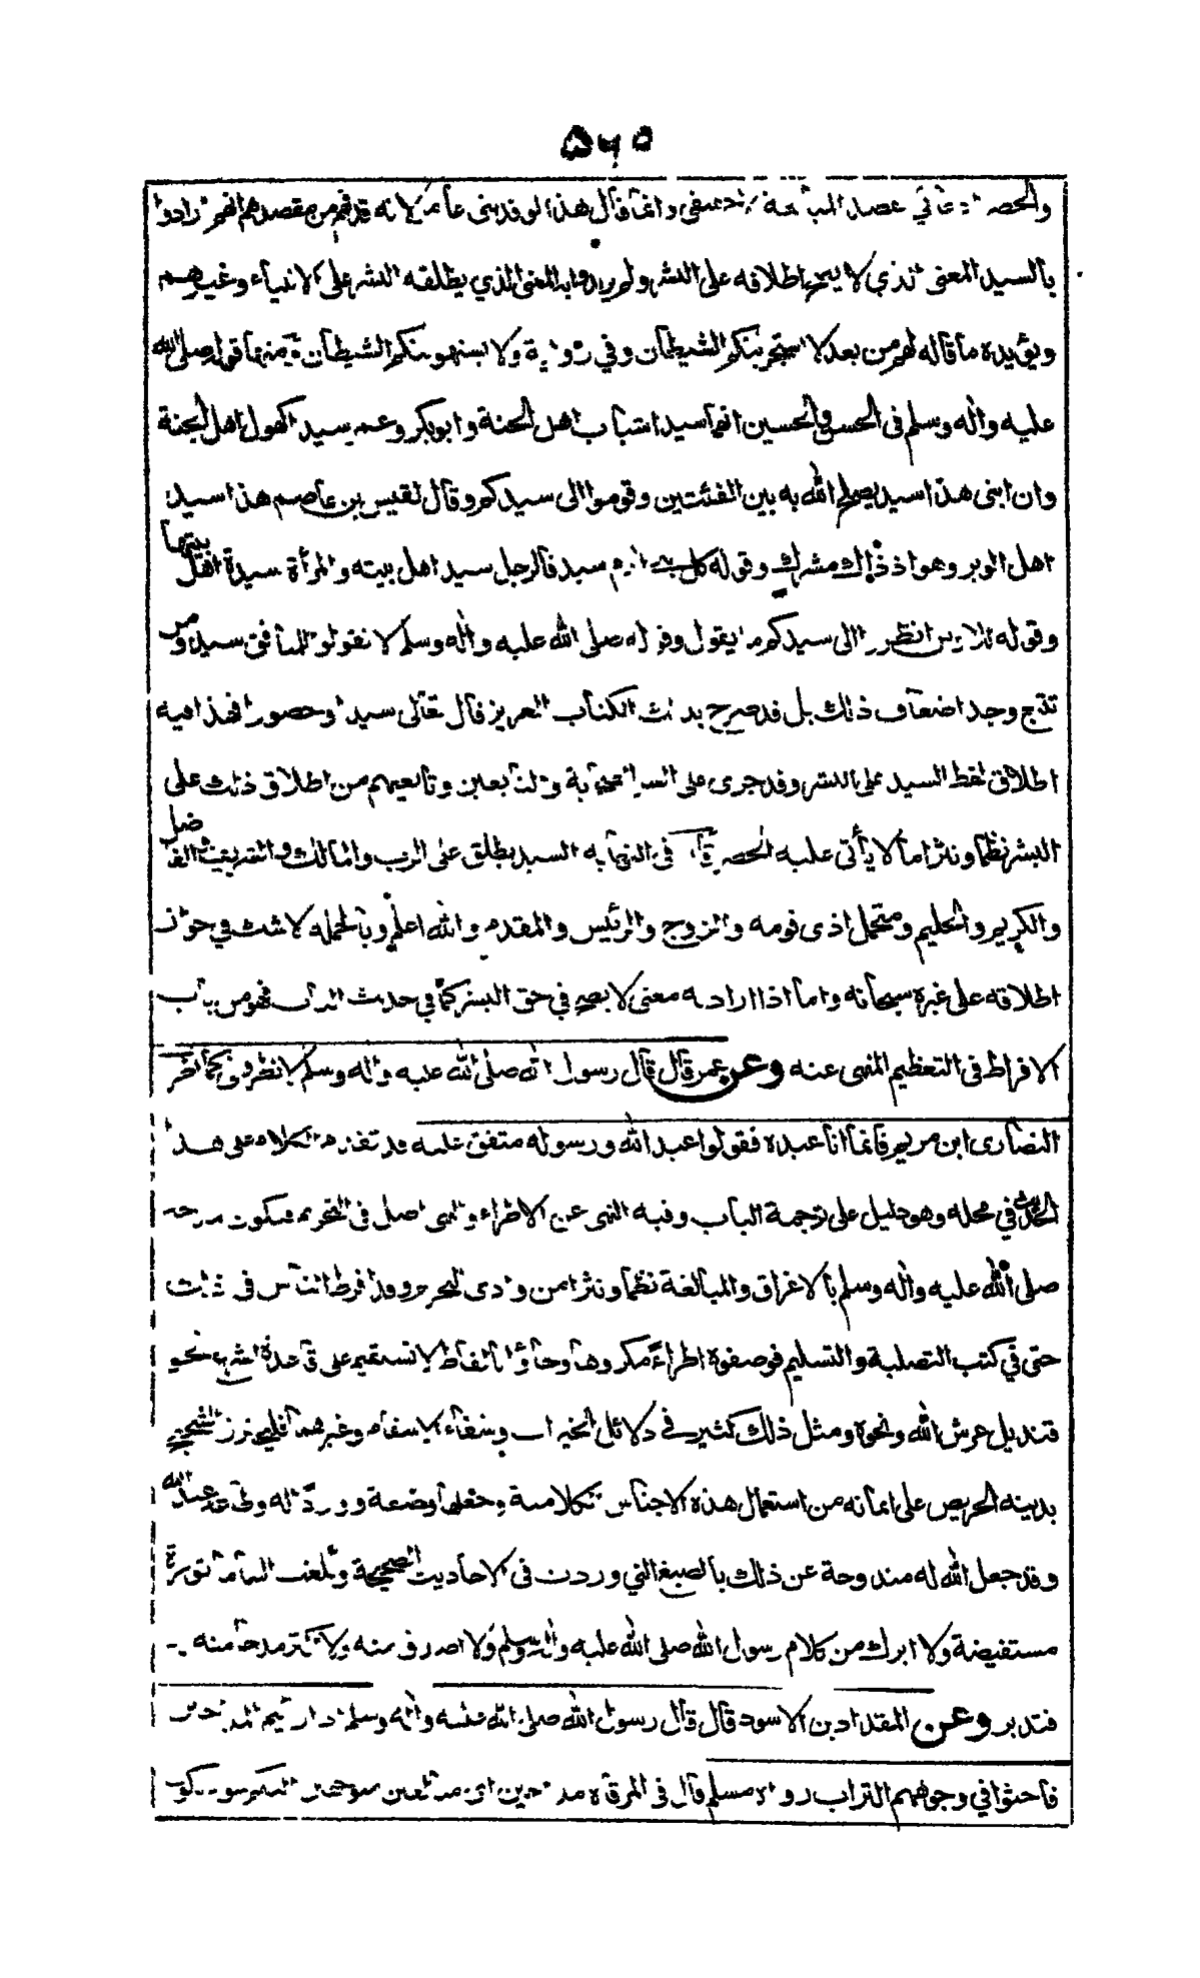 ٥٦٥
وانما قال هذا لوفد بنى عامر لانه قد فهم من مقصدهم انهم ارادوا
بالسيد المعنى الذي لا يصح اطلاقه على البشر ولم يريدوا به المعنى الذي يطلقه البشر على الانبياء وغيرهم
ويؤيده ما قاله لهم من بعد لا يستجرينكم الشيطان وفي رواية ولا يستهوينكم الشيطان ومنها قوله صلى الله
عليه واله وسلم فى الحسن والحسين انهما سيدا شباب اهل الجنة وابوبكر وعمر سيدا كهول اهل الجنة
وان ابنى هذا سيد يصلح الله به بين الفئتين وقوموا الى سيدكم وقال لقيس بن عاصم هذا سيد
اهل الوبر وهو اذ ذاك مشرك وقوله كل بنى ادم سيد فالرجل سيد اهل بيته والمرأة سيدة اهل بيتها
وقوله للانصار انظروا الى سيدكم ما يقول وقوله صلى الله عليه واله وسلم لا تقولوا للمنافق سيد ومن
تتبع وجد اضعاف ذلك بل قد صرح بذلك الكتاب العزيز قال تعالى سيدا وحصورا فهذا فيه
اطلاق لفظ السيد على البشر وقد جرى على السن الصحابة والتابعين وتابعيهم من اطلاق ذلك على
البشر نظما ونثرا ما لا يأتى عليه الحصر قال فى النهاية السيد يطلق على الرب والمالك والشريف والفاضل
والكريم والحليم ومتحمل اذى قومه والزوج والرئيس والمقدم والله اعلم وبالجملة لا شك في جواز
اطلاقه على غيره سبحانه واما اذا اراد به معنى لا يصح في حق البشر كما في حديث الباب فهو من باب
الافراط فى التعظيم المنهى عنه وعن عمر قال قال رسول الله صلى الله عليه واله وسلم لا تطروني كما اطرت
النصارى ابن مريم فانما انا عبده فقولوا عبد الله ورسوله متفق عليه قد تقدم الكلام على هذا
الحديث في محله وهو دليل على ترجمة الباب وفيه النهى عن الاطراء والنهى اصل فى التحريم فيكون مدحه
صلى الله عليه واله وسلم بالاغراق والمبالغة نظما ونثرا من وادى التحريم وقد افرط الناس فى ذلك
حتى في كتب التصلية والتسليم فوصفوه اطراء مكروها وجاؤا بالفاظ لا تستقيم على قاعدة الشرع نحو
قنديل عرش الله ونحوه ومثل ذلك كثير في دلائل الخيرات وشفاء الاسقام وغيرهما فليحترز الشحيح
بدينه الحريص على ايمانه من استعمال هذه الاجناس الكلامية
وقد جعل الله له مندوحة عن ذلك بالصيغ التي وردت فى الاحاديث الصحيحة
مستفيضة ولا ابرك من كلام رسول الله صلى الله عليه واله وسلم ولا اصدق منه ولا اكثر مدحا منه
فتدبر وعن المقداد بن الاسود قال قال رسول الله صلى الله عليه واله وسلم اذا رأيتم المداحين
فاحثوا في وجوههم التراب رواه مسلم قال فى المرقاة